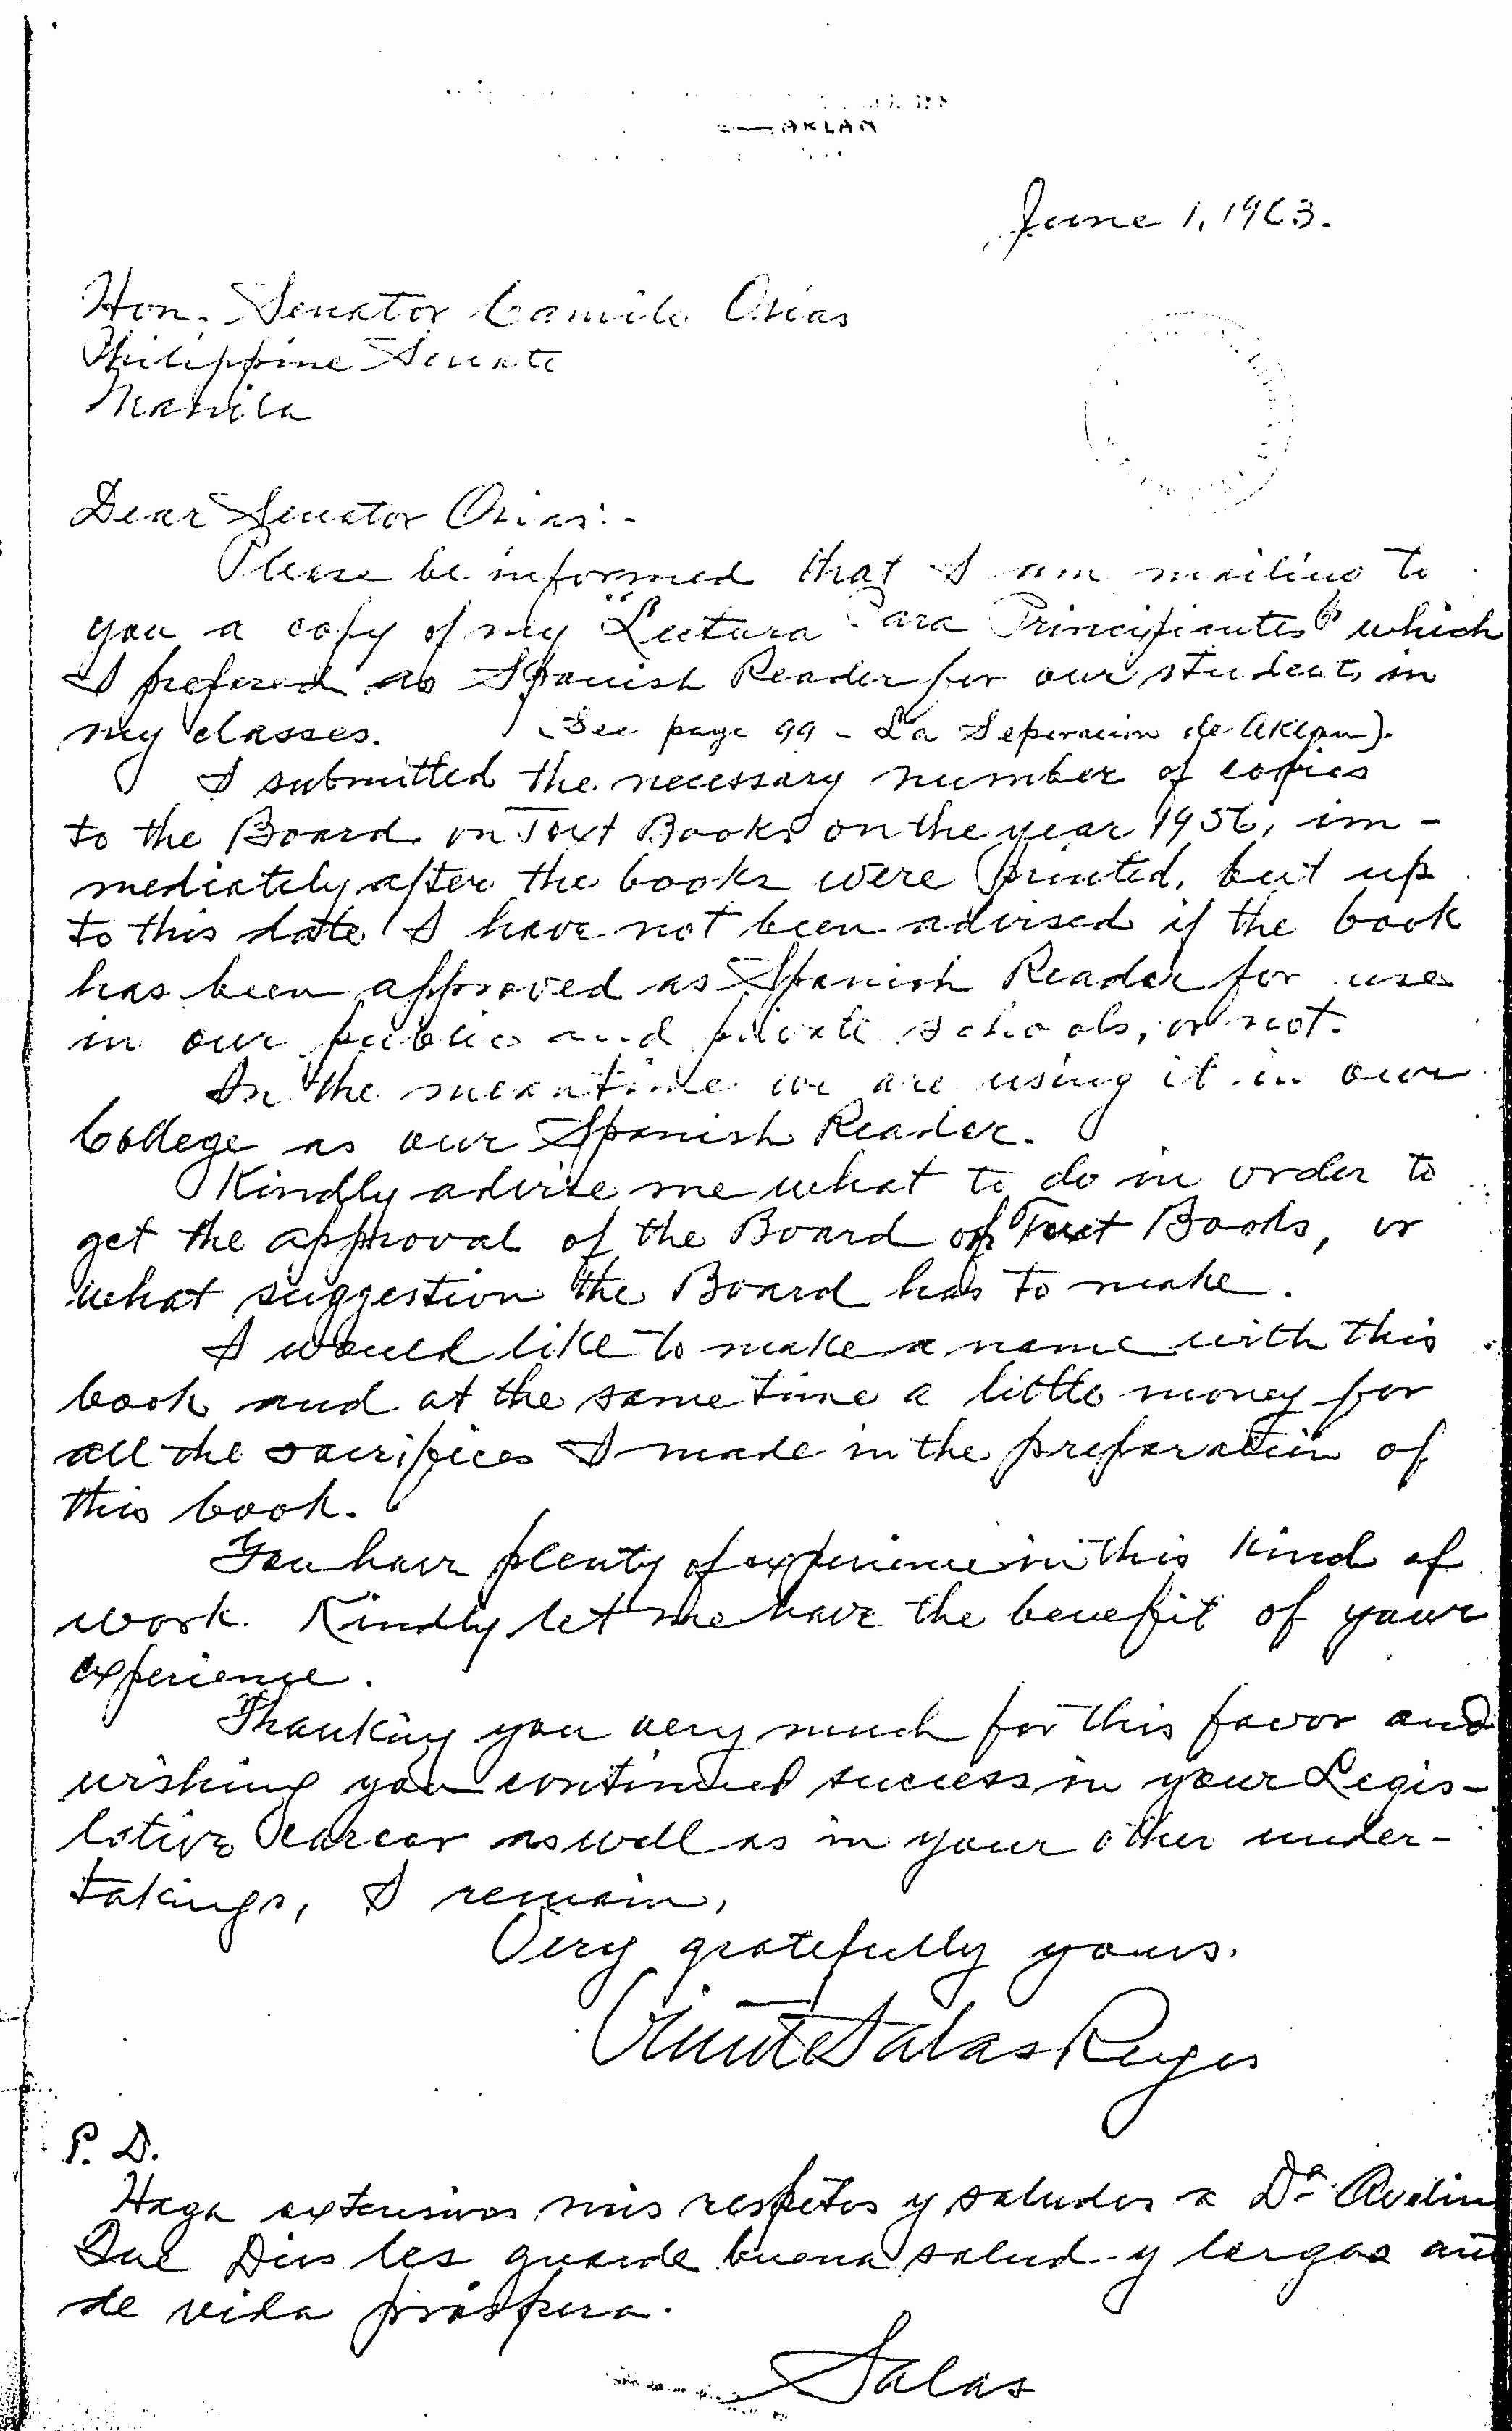 AKLAN
June 1, 1963.
Hon. Senator Camilo Osias
Philippine Senate
Manila
Dear Senator Osias:-
Please be informed that I am mailing to
you a copy of my "Lectura Para Principiantes" which
I prefered as Spanish Reader for our students in
my classes. (See page 99 - La Separacion de Aklan).
I submitted the necessary number of copies
to the Board on Text Books on the year 1956, im-
mediately after the books were printed, but up
to this date I have not been advised if the book
has been approved as Spanish Reader for use
in our public and private schools, or not.
In the meantime we are using it in our
College as our Spanish Reader.
Kindly advise me what to do in order to
get the approval of the Board on Text Books, or
what suggestion the Board has to make.
I would like to make a name with this
book and at the same time a little money for
all the sacrifices I made in the preparation of
this book.
You have plenty of experience in this kind of
work. Kindly let me have the benefit of your
experience.
Thanking you very much for this favor and
wishing you continued success in your Legis-
lative career as well as in your other under-
takings, I remain,
Very gratefully yours.
Vicente Salas Reyes
P. D.
Haga extensivos mis respetos y saludos a Dª Avelin
Que Dios les guarde buena salud y largos añ
de vida próspera.
Salas